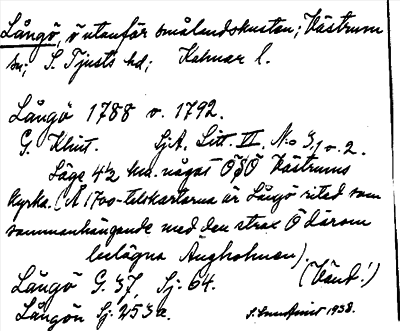 Långö, ö utanför smålandskusten; Västrum
sn; S. Tjusts hd; Kalmar l.
Långö 1788 o. 1792.
G. Klint. Sj.A. Litt. II. No 3, 1 o. 2.
Läge 4½ km. något ÖSÖ Västrums
kyrka. (Å 1700-talskartorna är Långö ritad som
sammanhängande med den strax Ö därom
belägna Ängholmen).
Långö G. 37, Sj. 64. (Vänd!)
Långön Sj. 253a.
1938.